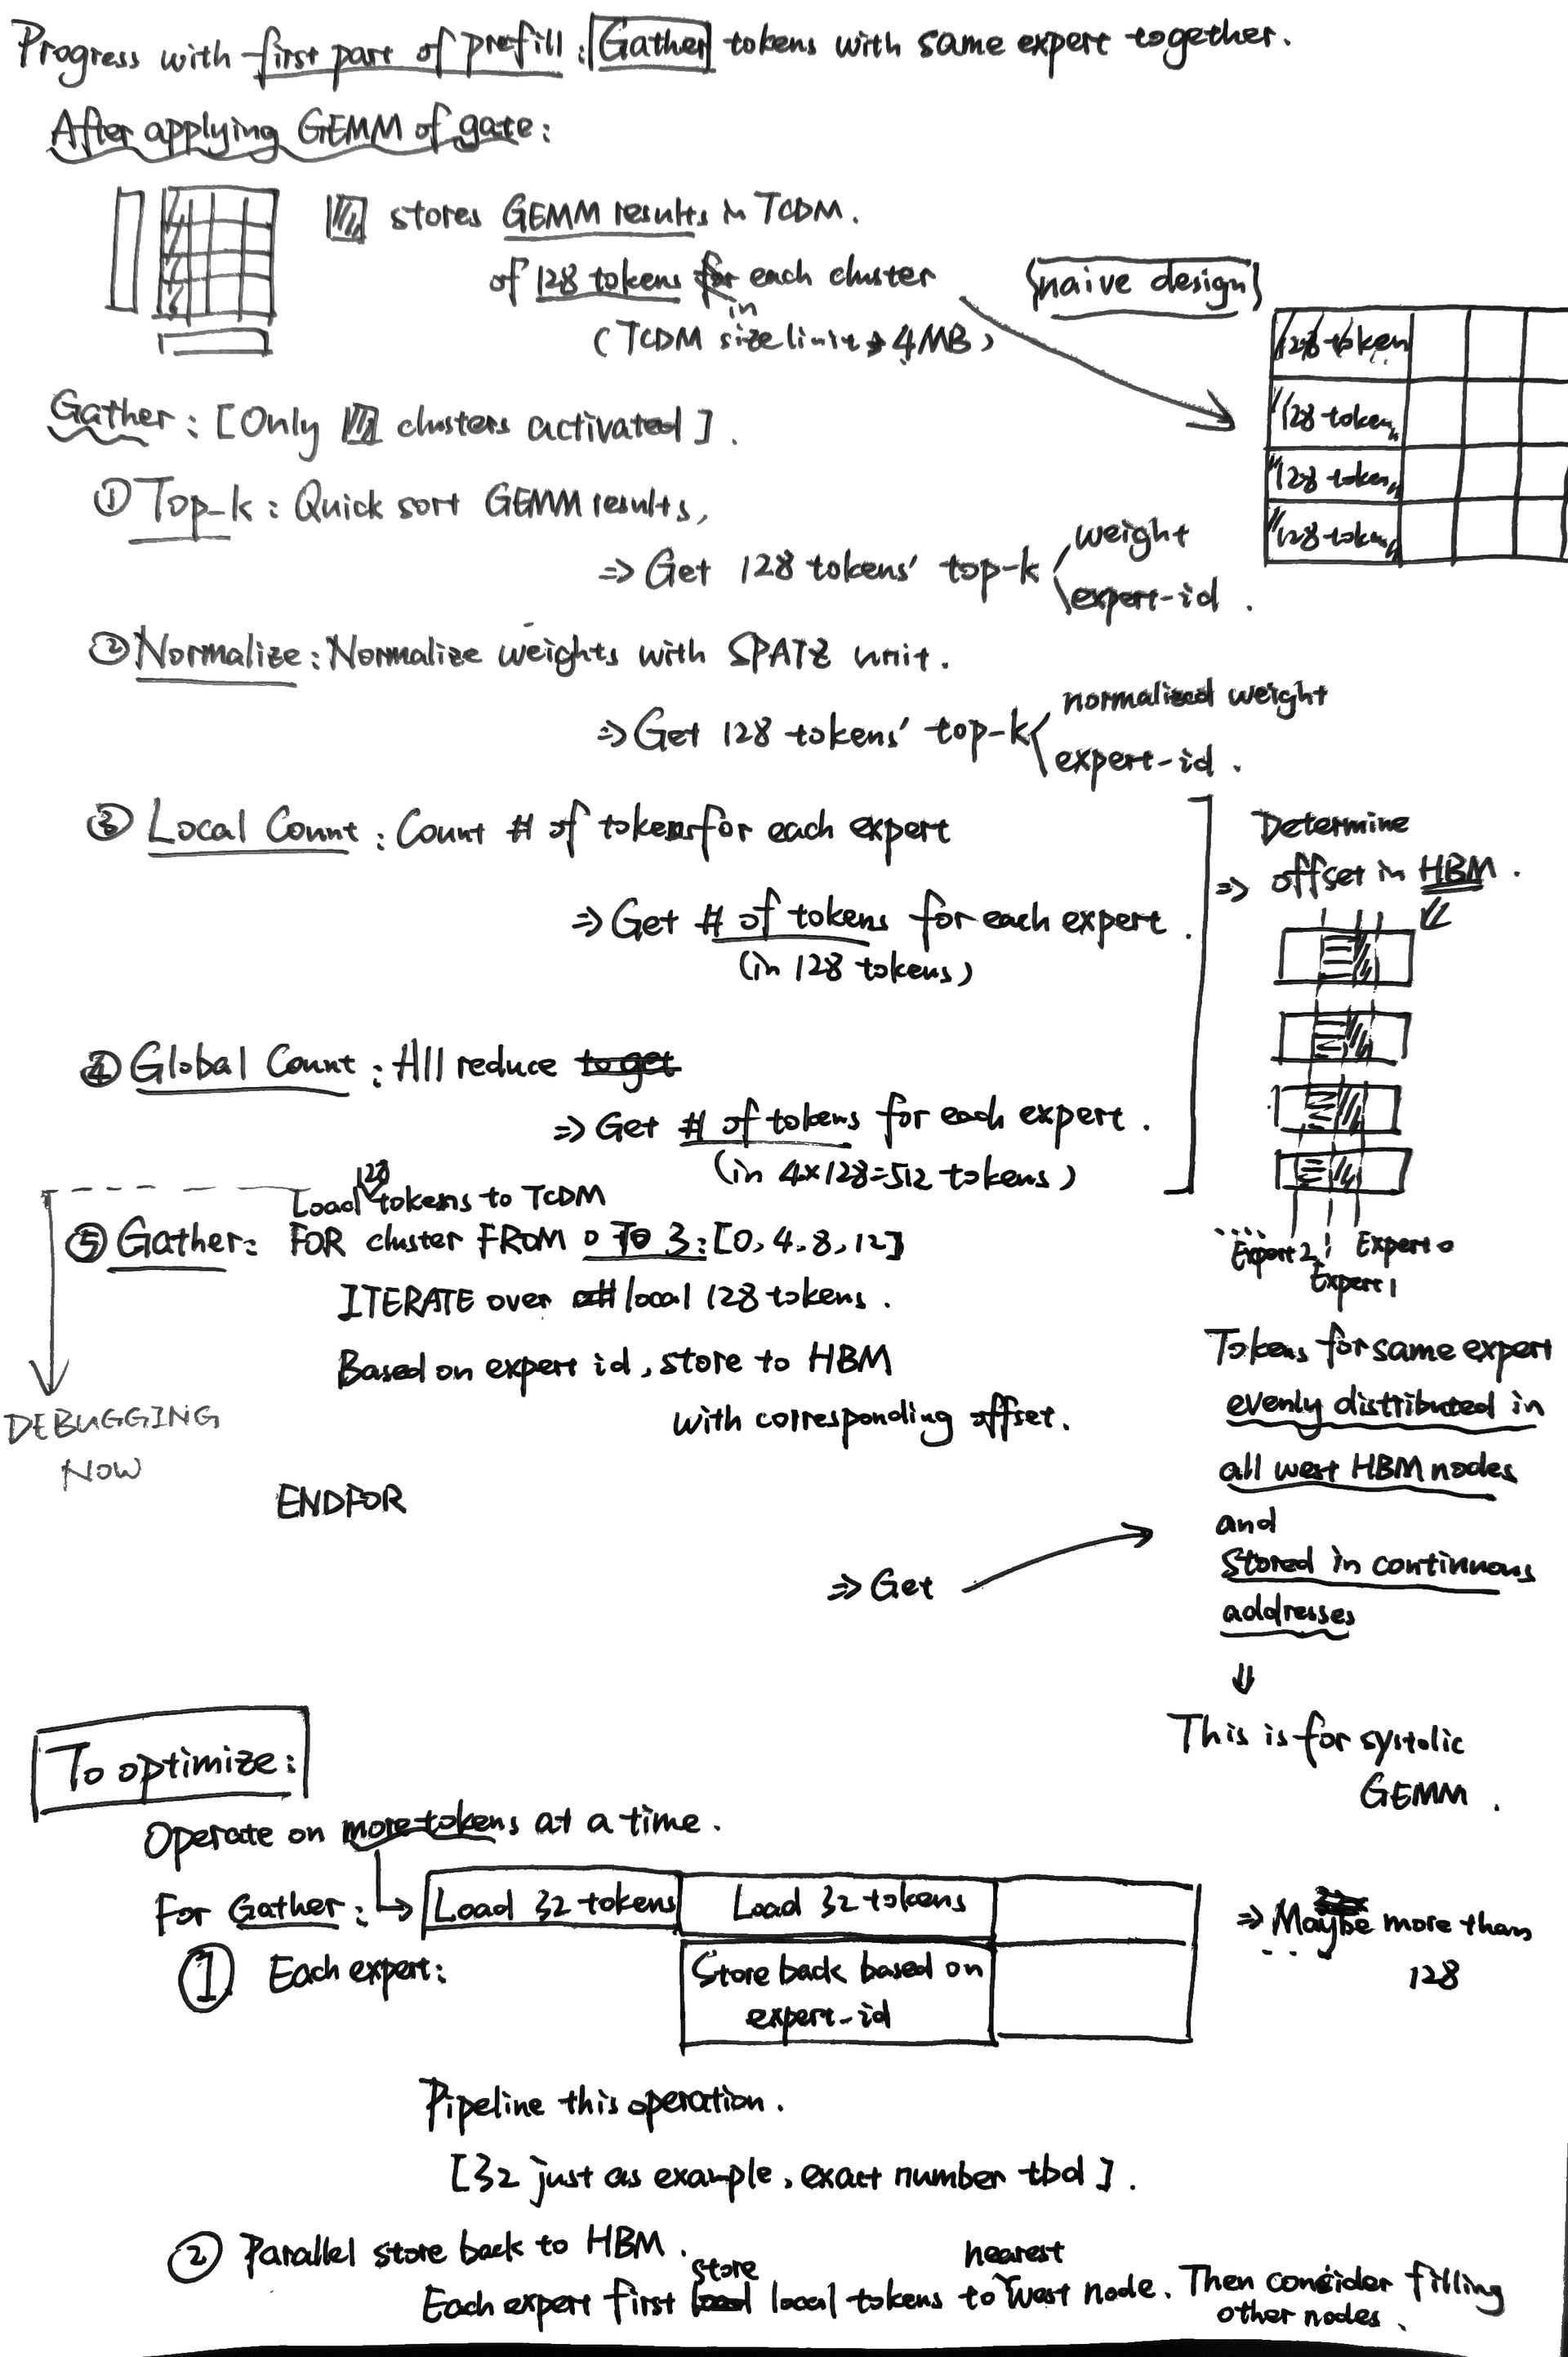 Progress with first part of prefill : Gather tokens with same expert together.
After applying GEMM of gate :
stores GEMM results in TCDM.
of 128 tokens in each cluster
(TCDM size limit → 4MB)
naive design
128 token
128 token
128 token
128 token
Gather : [Only clusters activated].
① Top-k : Quick sort GEMM results,
⇒ Get 128 tokens' top-k
weight
expert-id .
② Normalize : Normalize weights with SPATZ unit.
⇒ Get 128 tokens' top-k
normalized weight
expert-id .
③ Local Count : Count # of tokens for each expert
⇒ Get # of tokens for each expert.
(in 128 tokens)
④ Global Count : All reduce to get
⇒ Get # of tokens for each expert .
(in 4×128=512 tokens)
⇒ Determine
offset in HBM .
Expert 2
Expert 1
Expert 0
Load 128 tokens to TCDM
⑤ Gather : FOR cluster FROM 0 TO 3 : [0, 4, 8, 12]
ITERATE over local 128 tokens .
Based on expert id, store to HBM
with corresponding offset.
ENDFOR
DEBUGGING
NOW
⇒ Get
Tokens for same expert
evenly distributed in
all west HBM nodes
and
Stored in continuous
addresses
⇓
This is for systolic
GEMM .
To optimize :
Operate on more tokens at a time .
For Gather :
Load 32 tokens
Load 32 tokens
⇒ Maybe more than
128
① Each expert :
Store back based on
expert-id
Pipeline this operation .
[32 just as example, exact number tbd] .
② Parallel store back to HBM .
Each expert first store local tokens to nearest west node. Then consider filling
other nodes .